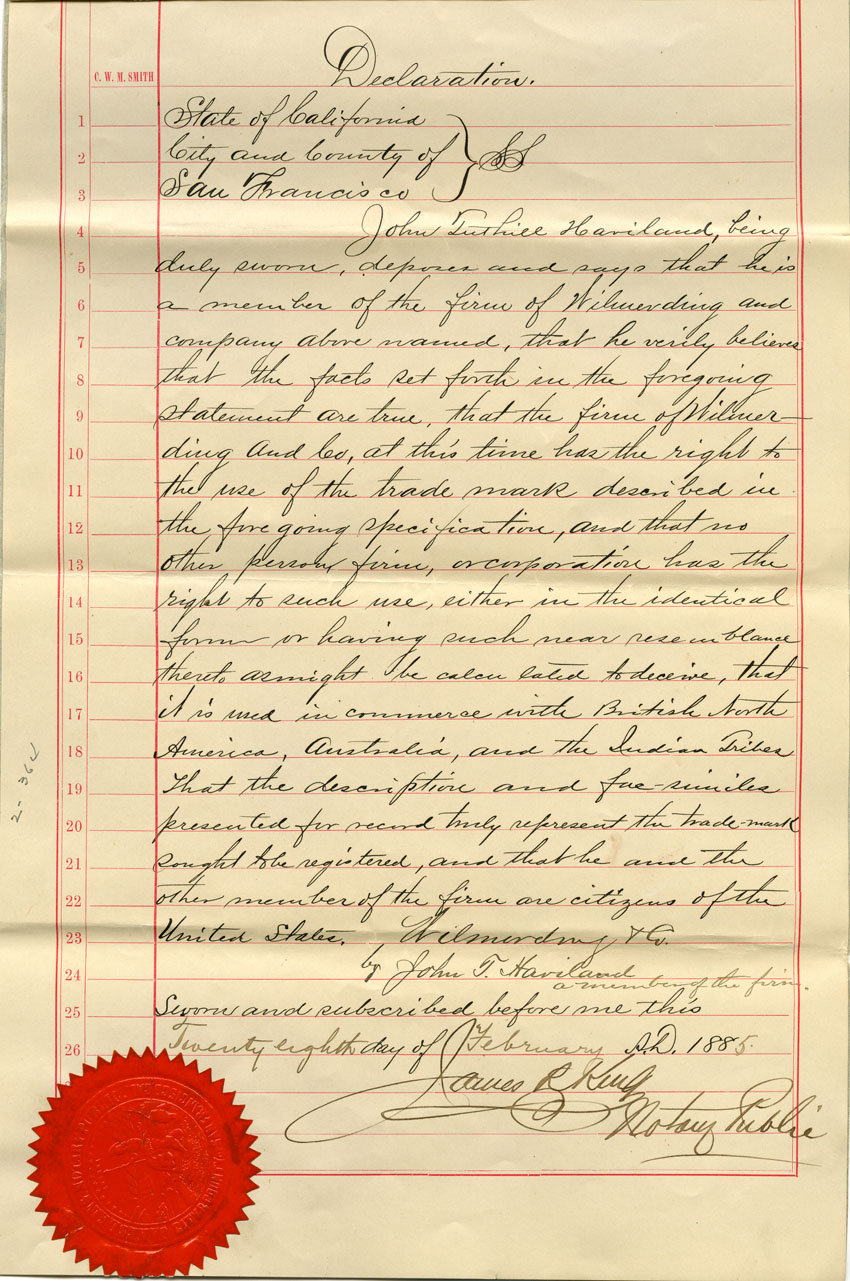 Declaration.
C. W. M. SMITH
1 State of California
2 City and County of } SS
3 San Francisco
4 John Tuthill Haviland, being
5 duly sworn, deposes and says that he is
6 a member of the firm of Wilmerding and
7 company above named, that he verily believes
8 that the facts set forth in the foregoing
9 statement are true, that the firm of Wilmer-
10 ding and Co, at this time has the right to
11 the use of the trade mark described in
12 the foregoing specification, and that no
13 other person, firm, or corporation has the
14 right to such use, either in the identical
15 form or having such near resemblance
16 thereto as might be calculated to deceive, that
17 it is used in commerce with British North
18 America, Australia, and the Indian Tribes
19 That the description and fac-similes
20 presented for record truly represent the trade-mark
21 sought to be registered, and that he and the
22 other member of the firm are citizens of the
23 United States. Wilmerding & Co.
24 by John T. Haviland
a member of the firm.
25 Sworn and subscribed before me this
26 Twenty eighth day of February A.D. 1885.
James R King
Notary Public
2-364